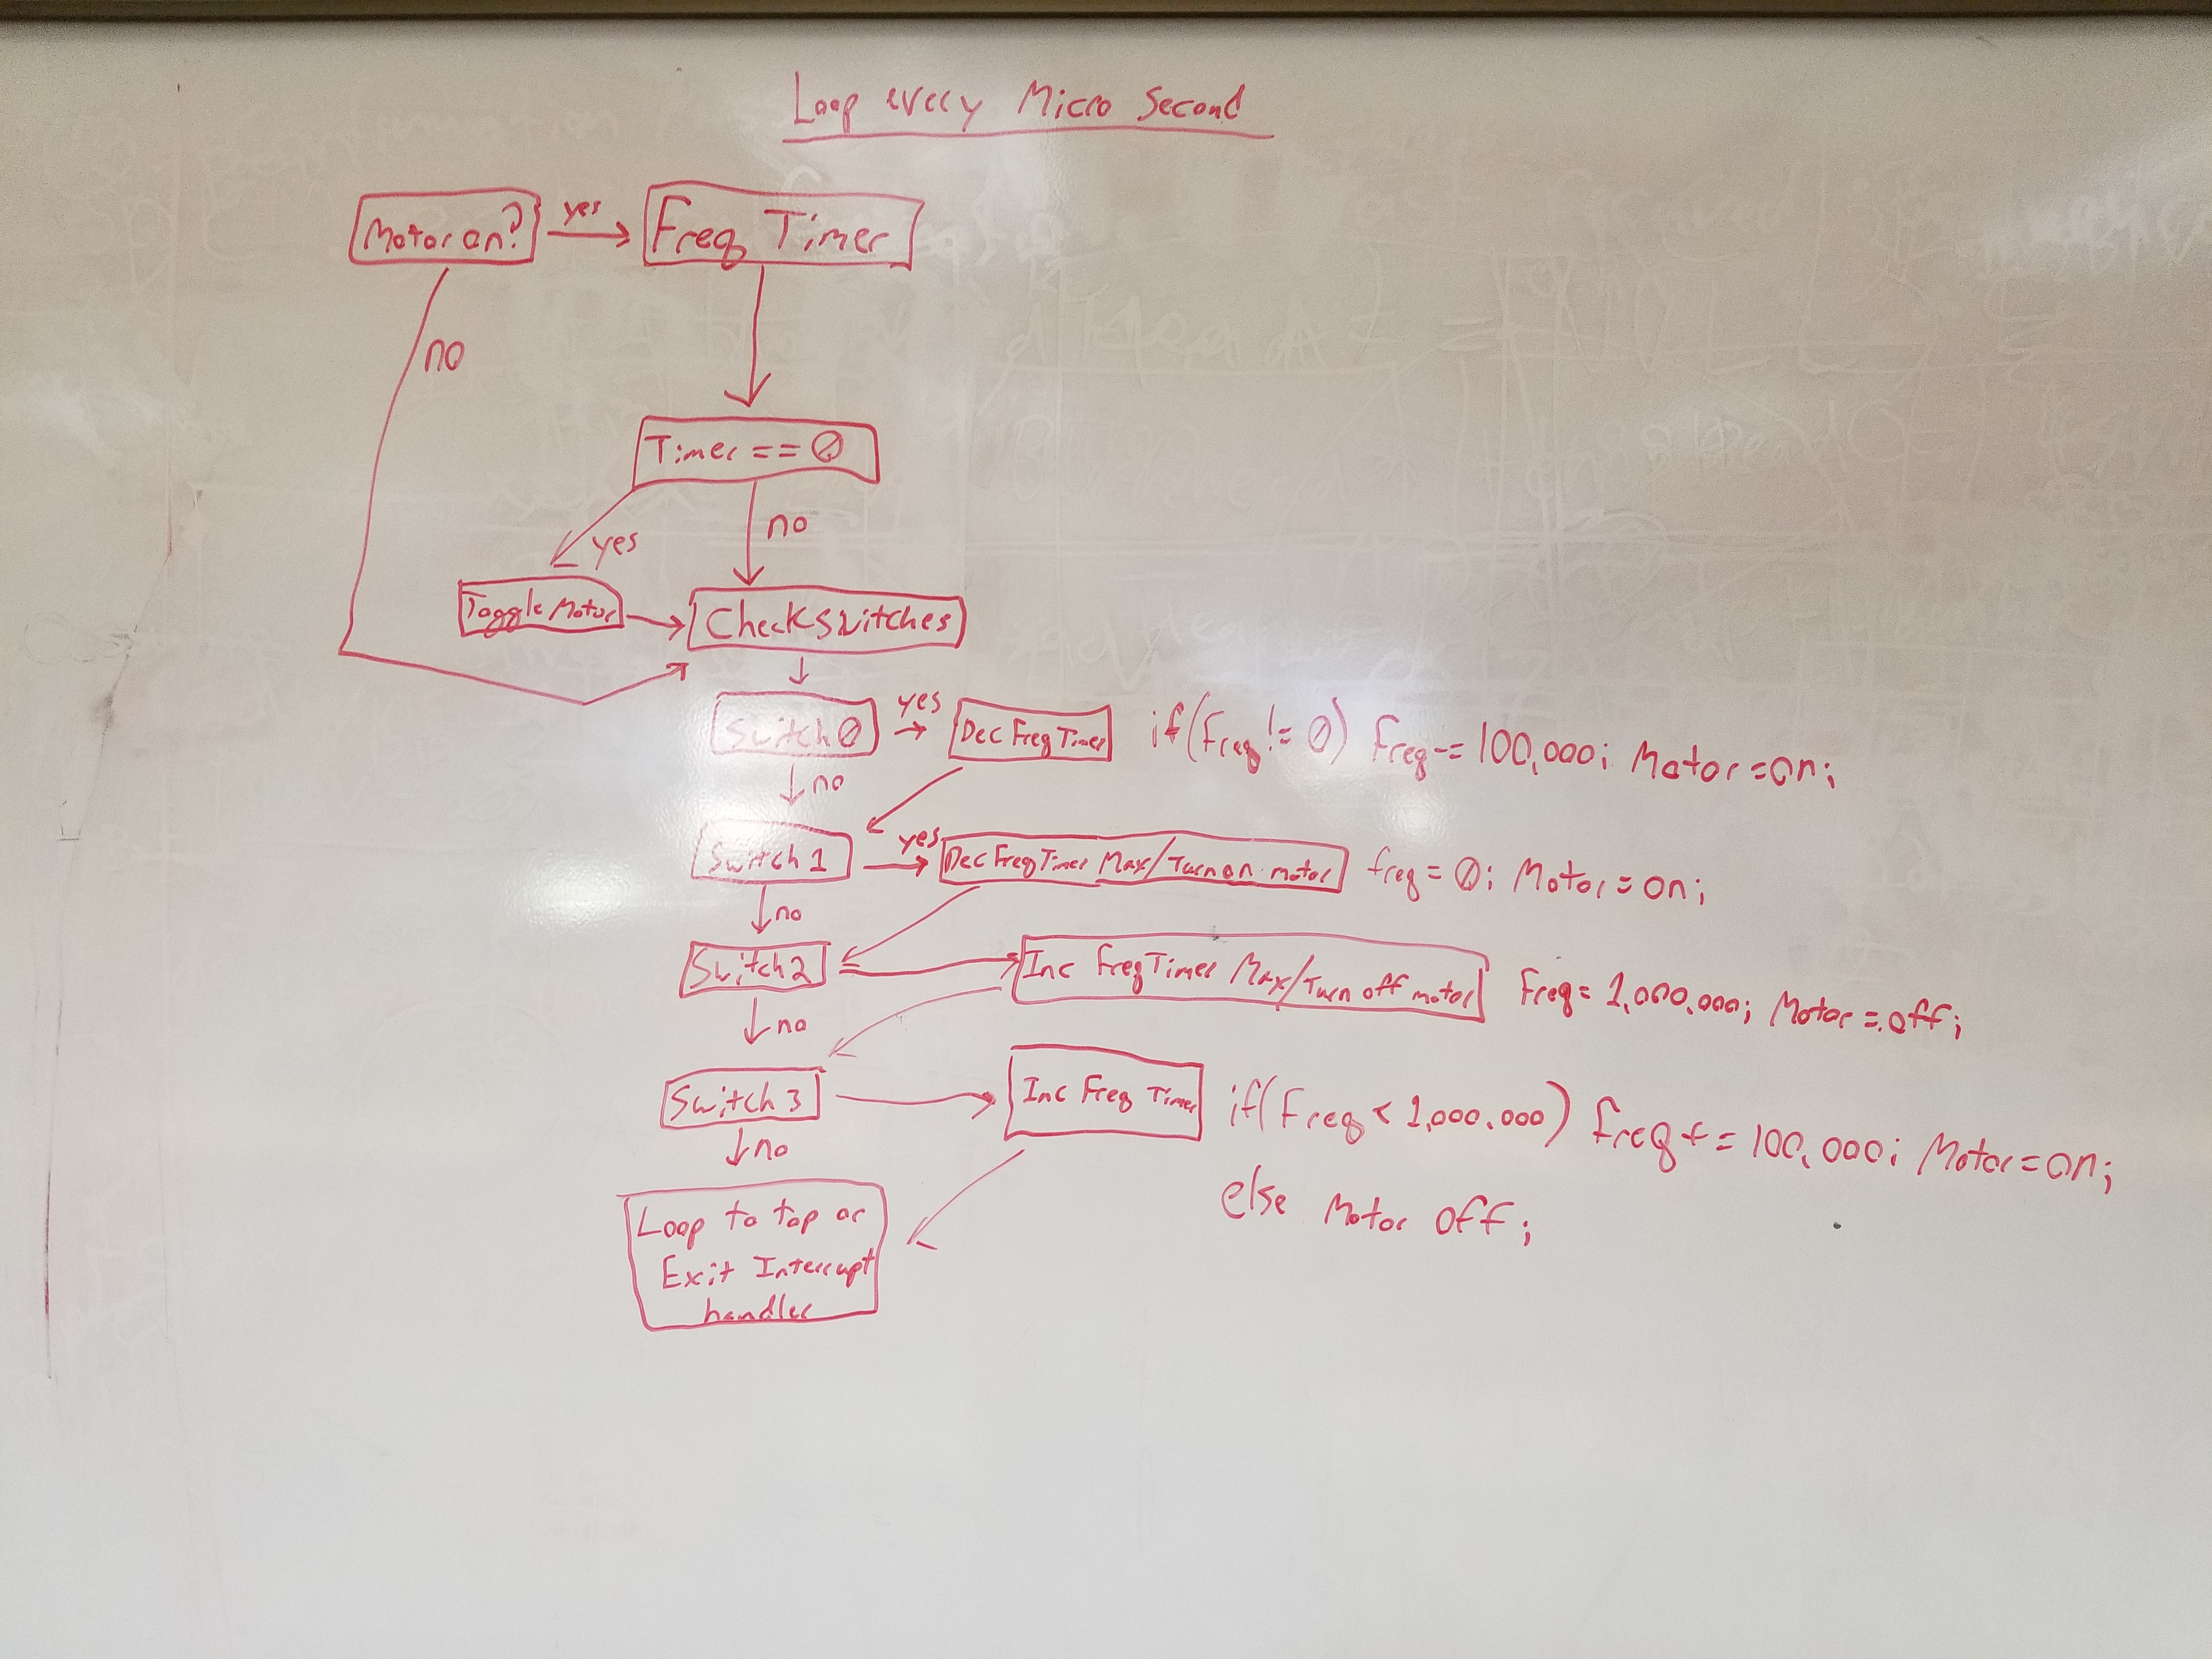 Loop every Micro Second
Motor on?
yes
Freq Timer
no
Timer == 0
yes
no
Toggle Motor
Check switches
Switch 0
yes
Dec Freq Timer
if(freq != 0) freq -= 100,000; Motor = on;
no
Switch 1
yes
Dec Freq Timer Max/Turn on motor
freq = 0; Motor = on;
no
Switch 2
Inc Freq Timer Max/Turn off motor
Freq = 1,000,000; Motor = off;
no
Switch 3
Inc Freq Timer
if(Freq < 1,000,000) freq += 100,000; Motor = on;
no
else Motor off;
Loop to top or
Exit Interrupt
handler